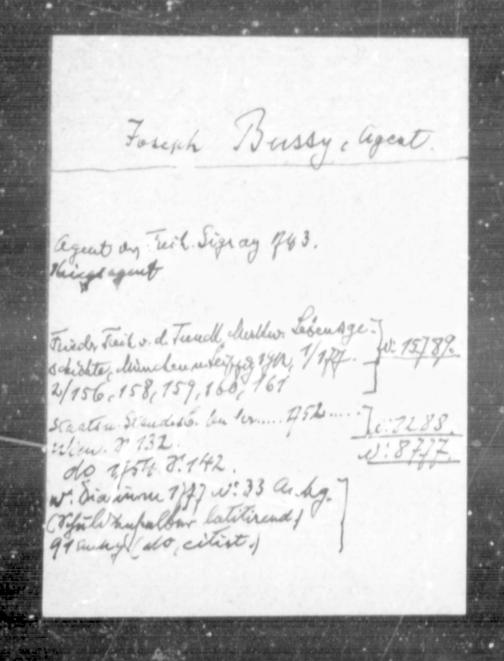 Joseph Bussy, Agent.
Agent des Freih. Sigray 743.
Kriegsagent
Frieder. Freih. v. d. Trenck, Merkw. Lebensge-
schichte, München u. Leipzig 1912, 1/177. W: 15789.
2/156, 158, 159, 160, 161
Staats u. Standes 1752 W: 1288.
Wien. S. 132. W: 8777.
do 1754 S. 142.
W. Diarium 1777 N: 33 Anhg.
(Schuldenhalber latitirend)
(do, citirt.)